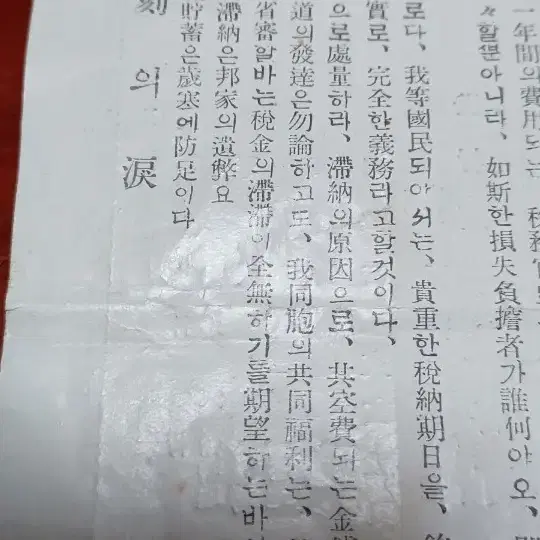 一年間의費用되는 稅務官
할뿐아니라、如斯한損失負擔者가誰何야오、
로다、我等國民되아서는、貴重한稅納期日을、
實로、完全한義務라고할것이다、
으로處量하라、滯納의原因으로、共空費되는金
道의發達은勿論하고도、我同胞의共同福利는、
省審알바는稅金의滯滯이全無하기를期望하는바
滯納은邦家의遺弊요
貯蓄은歲寒에防足이다
刻의淚